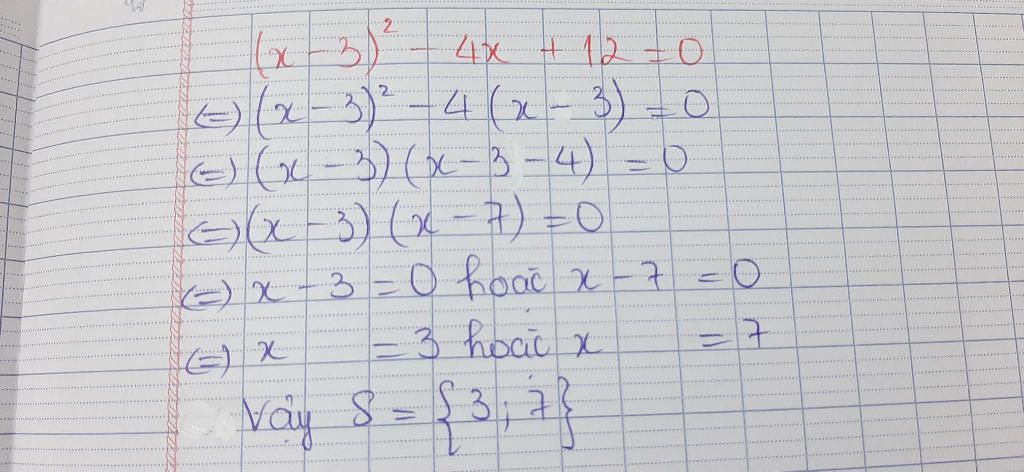 (x - 3)² - 4x + 12 = 0
⇔ (x - 3)² - 4 (x - 3) = 0
⇔ (x - 3) (x - 3 - 4) = 0
⇔ (x - 3) (x - 7) = 0
⇔ x - 3 = 0 hoặc x - 7 = 0
⇔ x = 3 hoặc x = 7
Vậy S = {3; 7}